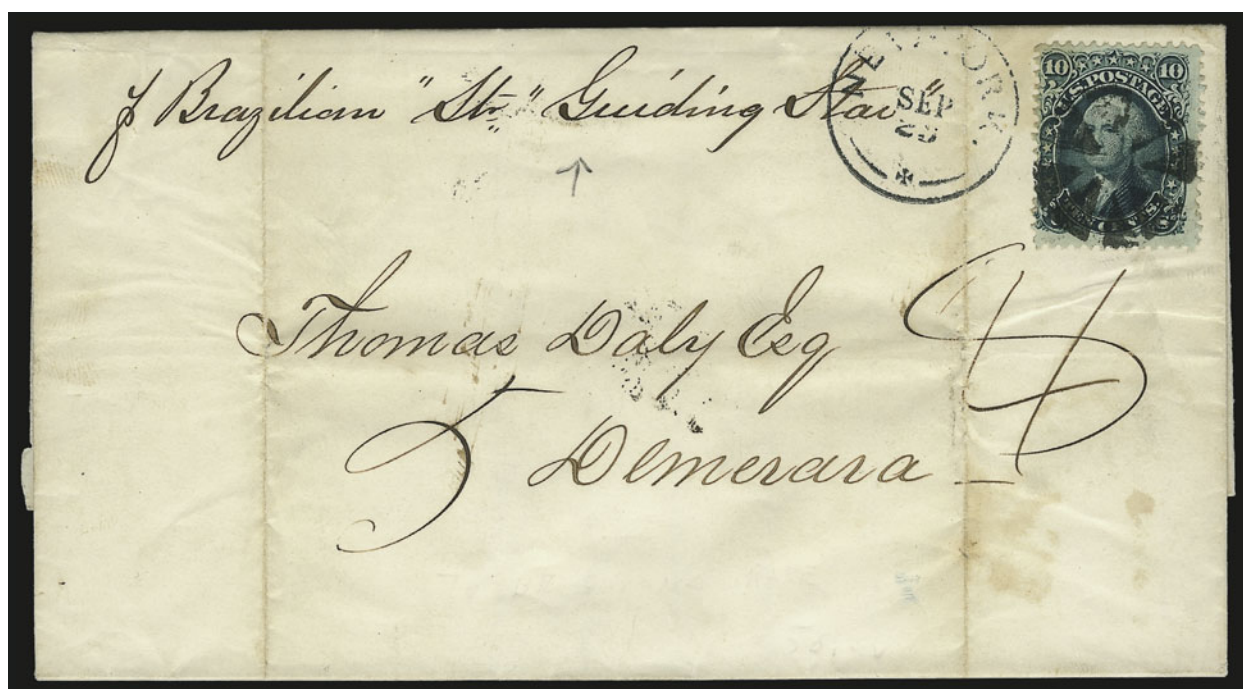 p Brazilian "Str" Guiding Star"
NEW YORK
SEP
29
10 10
U.S. POSTAGE
TEN CTS.
Thomas Daly Esq
Demerara